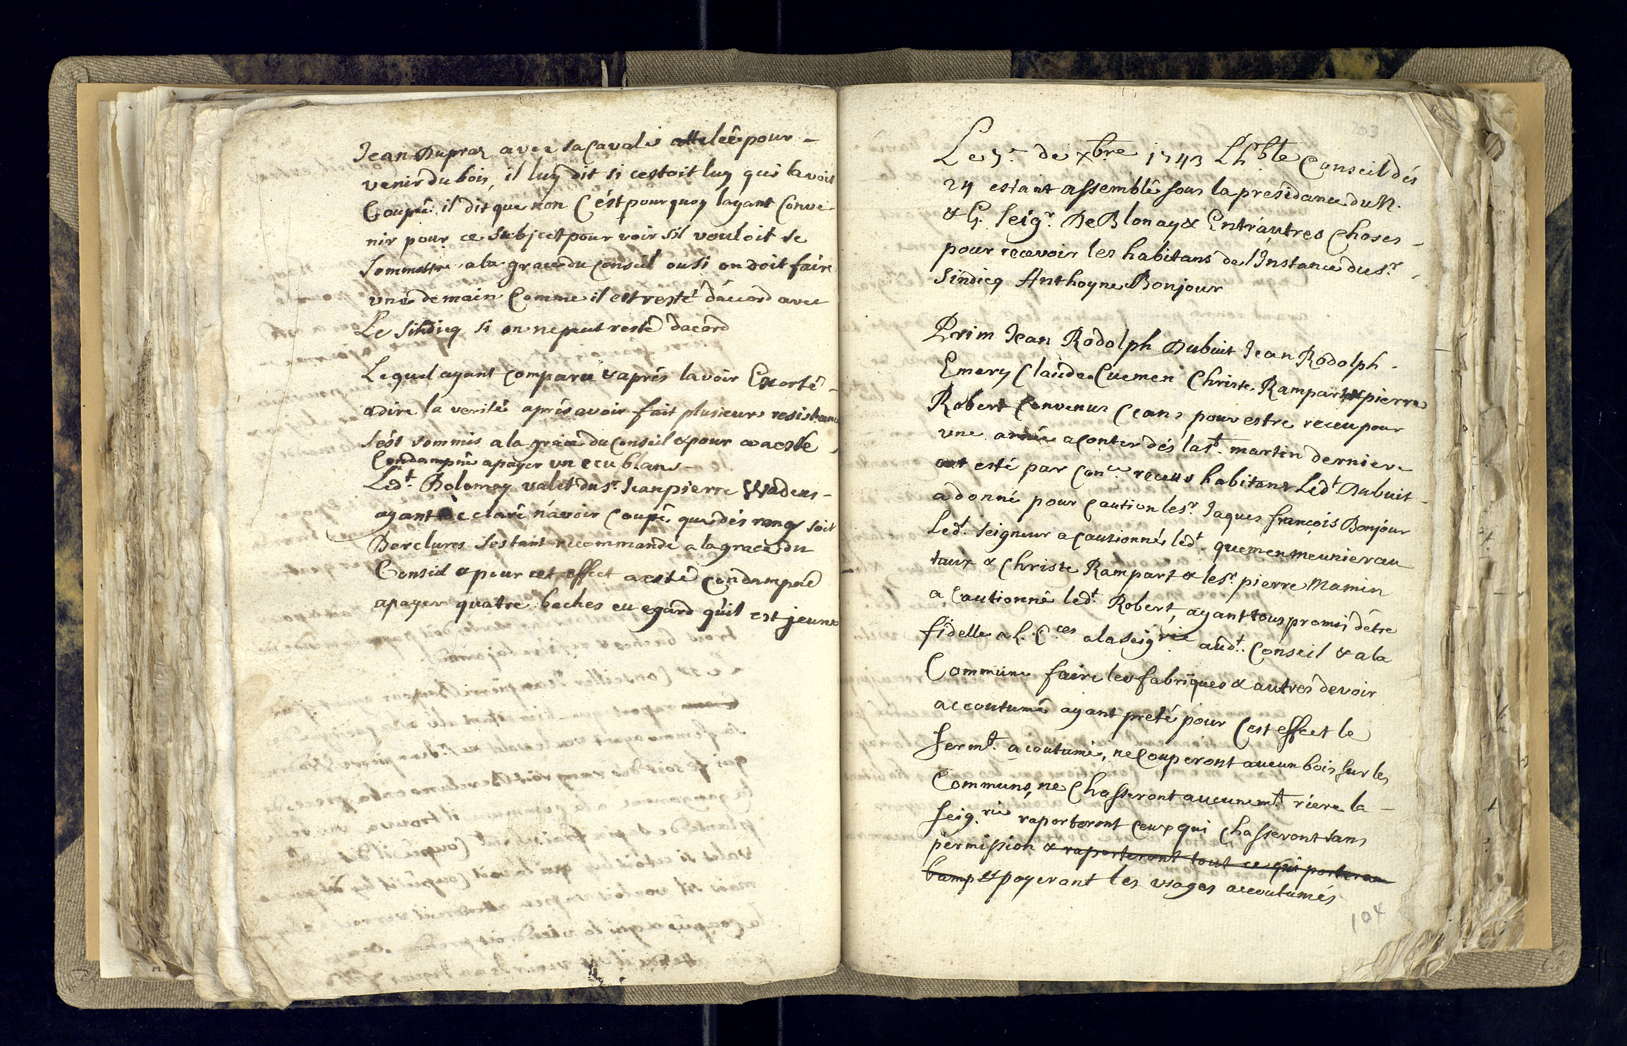 Jean Dupraz avec sa Cavale attelée pour -
venir du bois, il luy dit si cestoit luy qui lavoit
Coupé il dit que non C'ést pourquoy layant Conve-
nir pour ce subject pour voir sil vouloit se
sommettre a la grace du Conseil ou si on doit faire
une demain Comme il est resté dáccord avec
Le Sindicq si on ne peut resté dacord
Lequel ayant Comparu & aprés lavoir Exorté -
a dire la verité aprés avoir fait plusieurs resistance
sést sommis a la grace du Conseil & pour ce a esté
Condampné a payer un ecu blanc
Led.t Bolomey valet du Sr. Jean pierre Waders -
ayant declaré n'avoir Coupé que dés rangs soit
Derclures sestant recommandé a la grace du
Conseil & pour cet effect a esté Condampné
a payer quatre baches eu egard qu'il est jeune
103
Le 7.e de Xbre 1743 Lh.ble Conseil dés
24 estant assemblé sous la présidance du N.
& G. Seig.r De Blonay & Entráutres Choses -
pour recevoir les habitans de l'Instance du Sr.
Sindicq Anthoyne Bonjour
Prim Jean Rodolph Dubuit Jean Rodolph -
Emery Claude Cuemen Christe Rampart & pierre
Robert Convenus Ceans pour estre receu pour
une année a Conter dés la St. martin derniere
ont esté par Con.ce receus habitans Led.t Dubuit -
a donné pour Caution le Sr. Jaques françois Bonjour
Led.t Seigneur a Cautionné led.t quemen meunier au
taux & Christe Rampart & le Sr. pierre Mamin
a Cautionné led.t Robert, ayant tous promis d'étre
fidelle a L. E.ces a la Seig.rie aud.t Conseil & a la
Commune faire les fabriques & autres devoir
accoutumé ayant preté pour Cest effect le
serm.t acoutumé, ne Couperont aucun bois sur les
Communs, ne Chasseront aucunem.t riere la -
Seig.rie raporteront Ceux qui Chasseront sans
permission & raporteront tout ce qui porteron
bamp & payeront les usages accoutumés
104